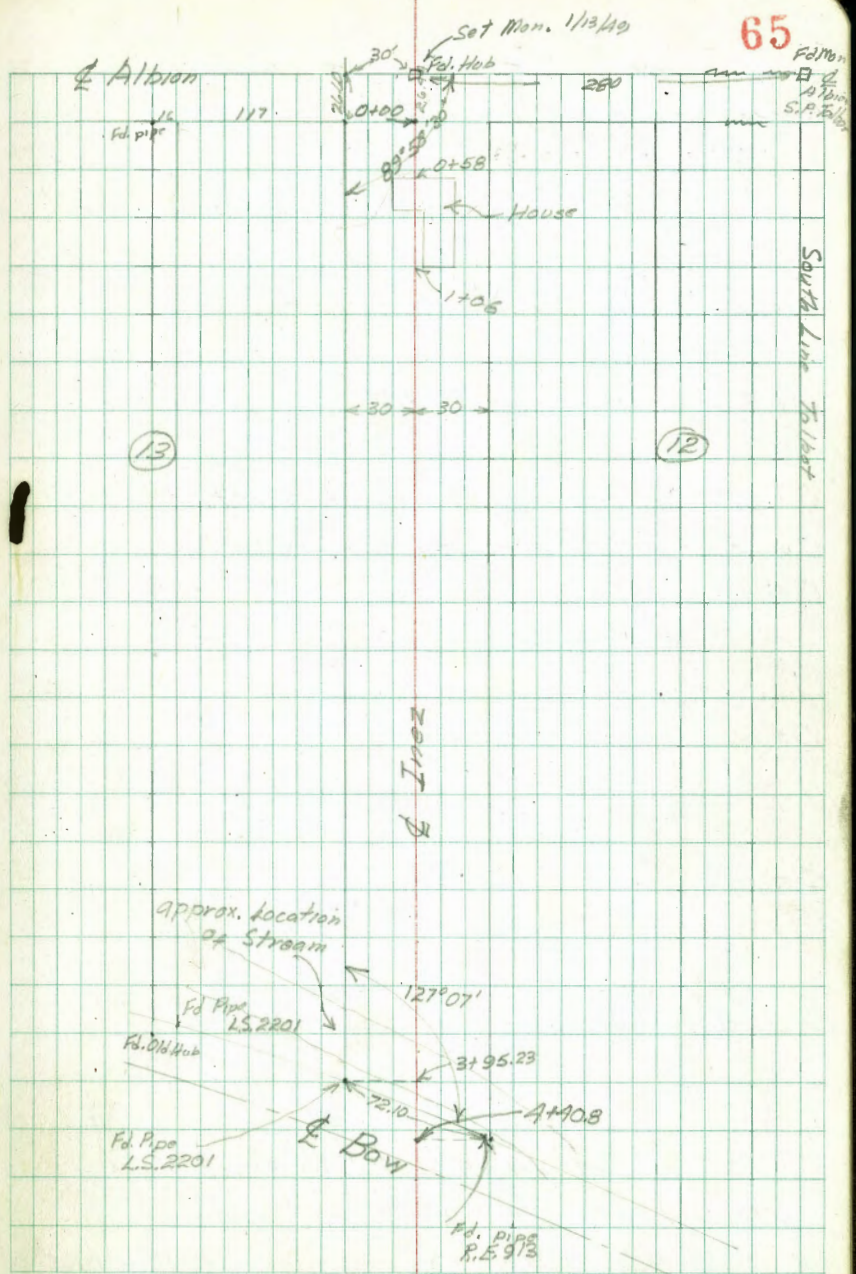 65
Set Mon. 1/13/49
30'
Fd. Hub
Fd Mon
℄ Albion
280
℄
Albion
S.P. Talbot
16
117
Fd. pipe
0+00
0+58
House
1+06
South Line Talbot
30 30
13
12
℄ Inez
approx. Location
of Stream
127°07'
Fd Pipe
L.S. 2201
Fd. Old Hub
3+95.23
72.10
4+40.8
Fd. Pipe
L.S. 2201
℄ Bow
Fd. pipe
R.E. 913